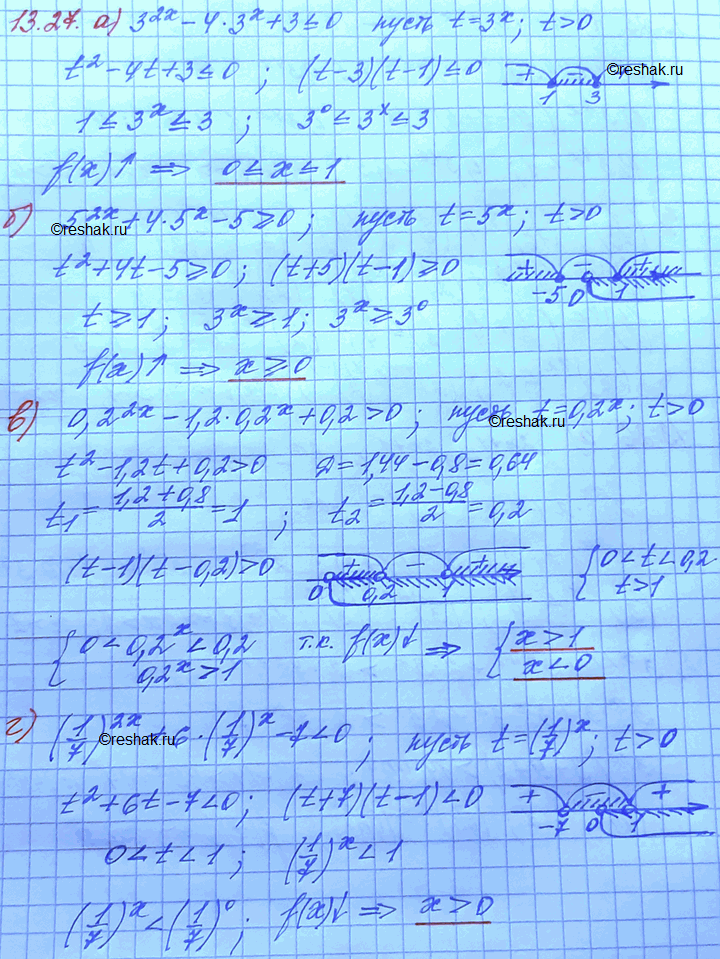 13.27. а) 3^2x - 4·3^x + 3 ≤ 0 пусть t = 3^x; t > 0
t² - 4t + 3 ≤ 0; (t-3)(t-1) ≤ 0 + - 1 3 ©reshak.ru
1 ≤ 3^x ≤ 3; 3⁰ ≤ 3^x ≤ 3
f(x)↑ ⇒ 0 ≤ x ≤ 1
б) 5^2x + 4·5^x - 5 ≥ 0; пусть t = 5^x; t > 0
©reshak.ru
t² + 4t - 5 ≥ 0; (t+5)(t-1) ≥ 0 + - + -5 0 1
t ≥ 1; 3^x ≥ 1; 3^x ≥ 3⁰
f(x)↑ ⇒ x ≥ 0
в) 0,2^2x - 1,2·0,2^x + 0,2 > 0; пусть t = 0,2^x; t > 0
©reshak.ru
t² - 1,2t + 0,2 > 0 D = 1,44 - 0,8 = 0,64
t₁ = (1,2+0,8)/2 = 1; t₂ = (1,2-0,8)/2 = 0,2
(t-1)(t-0,2) > 0 + - + 0 0,2 1 { 0 < t < 0,2
t > 1
{ 0 < 0,2^x < 0,2 т.к. f(x)↓ ⇒ { x > 1
0,2^x > 1 x < 0
г) (1/7)^2x + 6·(1/7)^x - 7 < 0; пусть t = (1/7)^x; t > 0
©reshak.ru
t² + 6t - 7 < 0; (t+7)(t-1) < 0 + - + -7 0 1
0 < t < 1; (1/7)^x < 1
(1/7)^x < (1/7)⁰; f(x)↓ ⇒ x > 0